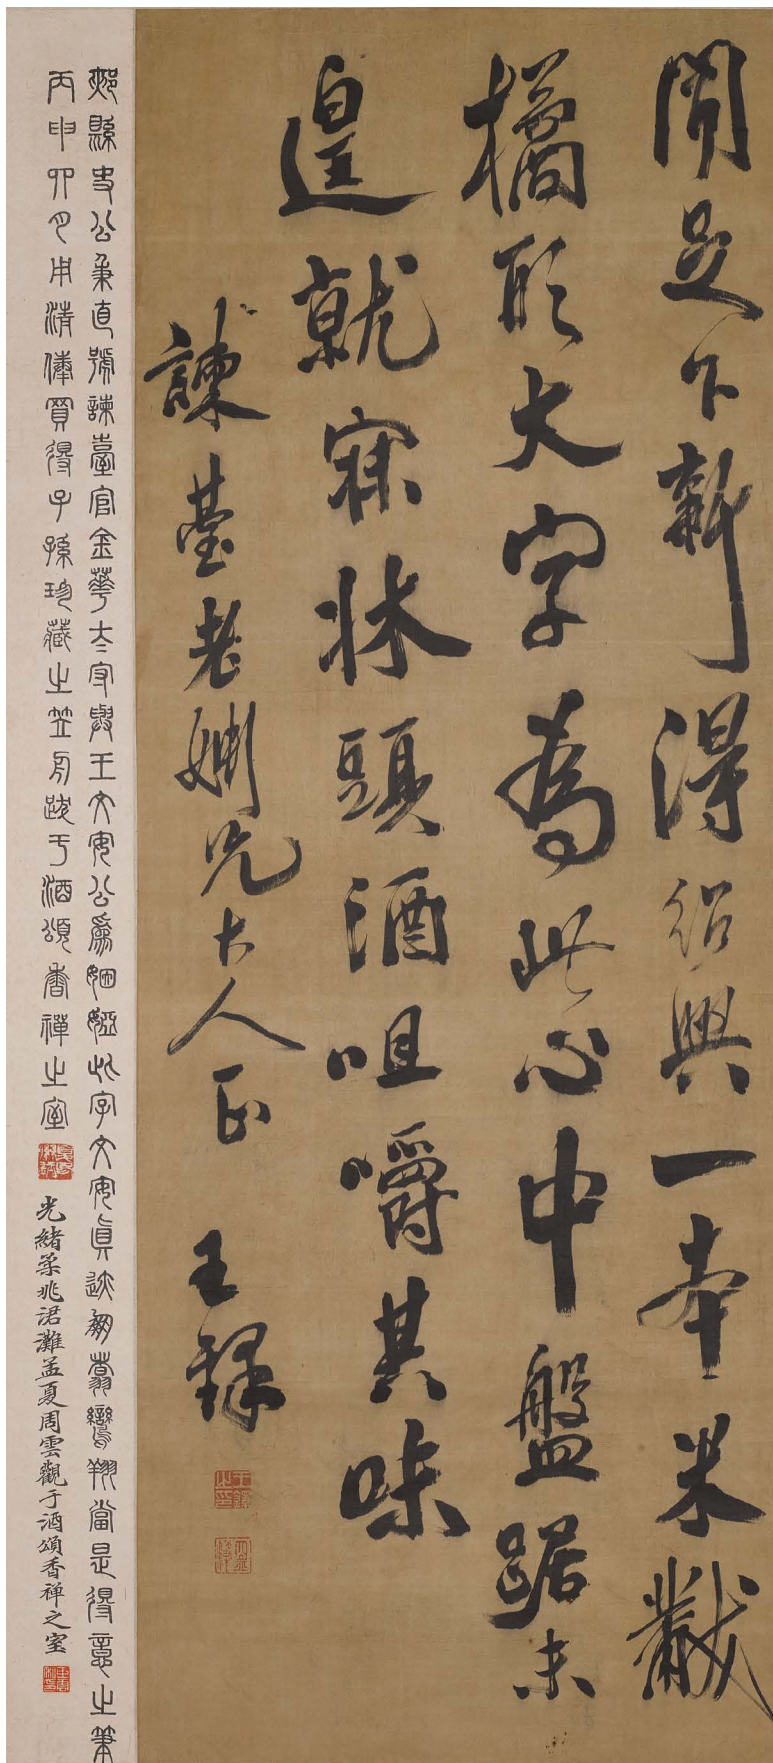 聞足下新得紹興一本米黻
橘大字為此心中盤踞未
遑就寐牀頭酒咀嚼其味
諫臺老姻兄大人正 王鐸
王鐸之印
郟縣史公秉直號諫臺官金華太守與王文安公為姻婭此字文安真迹鳳翥鸞翔當是得意之筆
丙申四月用清俸買得子孫珍藏之笠舟跋于酒頌香禪之室
光緒柔兆涒灘孟夏周雲觀于酒頌香禪之室